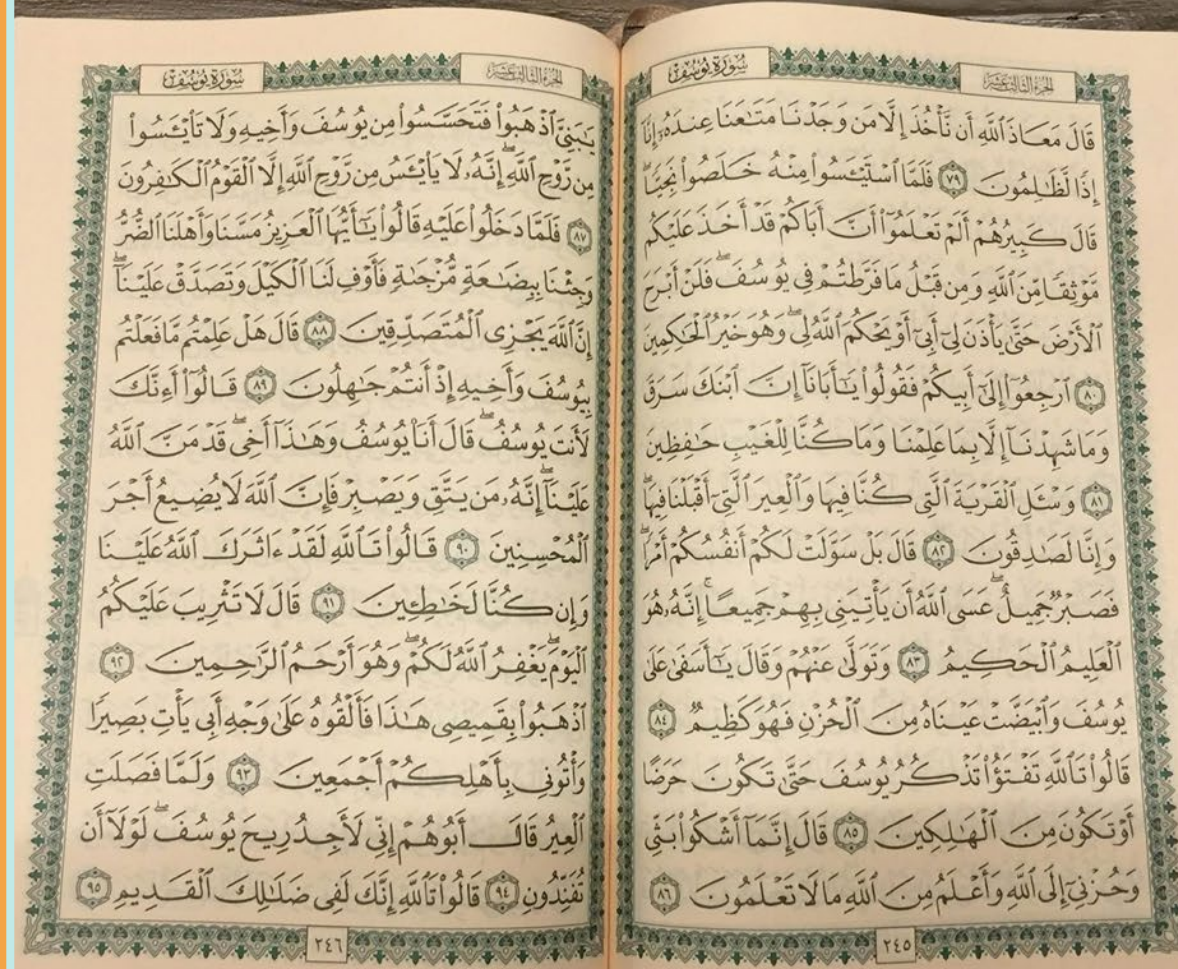 سُورَةُ يُوسُفَ
الجزء الثالث عشر
قَالَ مَعَاذَ ٱللَّهِ أَن نَّأْخُذَ إِلَّا مَن وَجَدْنَا مَتَٰعَنَا عِندَهُۥٓ إِنَّآ
إِذًا لَّظَٰلِمُونَ ٧٩ فَلَمَّا ٱسْتَيْـَٔسُوا۟ مِنْهُ خَلَصُوا۟ نَجِيًّاۖ
قَالَ كَبِيرُهُمْ أَلَمْ تَعْلَمُوٓا۟ أَنَّ أَبَاكُمْ قَدْ أَخَذَ عَلَيْكُم
مَّوْثِقًا مِّنَ ٱللَّهِ وَمِن قَبْلُ مَا فَرَّطتُمْ فِى يُوسُفَۖ فَلَنْ أَبْرَحَ
ٱلْأَرْضَ حَتَّىٰ يَأْذَنَ لِىٓ أَبِىٓ أَوْ يَحْكُمَ ٱللَّهُ لِىۖ وَهُوَ خَيْرُ ٱلْحَٰكِمِينَ
٨٠ ٱرْجِعُوٓا۟ إِلَىٰٓ أَبِيكُمْ فَقُولُوا۟ يَٰٓأَبَانَآ إِنَّ ٱبْنَكَ سَرَقَ
وَمَا شَهِدْنَآ إِلَّا بِمَا عَلِمْنَا وَمَا كُنَّا لِلْغَيْبِ حَٰفِظِينَ
٨١ وَسْـَٔلِ ٱلْقَرْيَةَ ٱلَّتِى كُنَّا فِيهَا وَٱلْعِيرَ ٱلَّتِىٓ أَقْبَلْنَا فِيهَاۖ
وَإِنَّا لَصَٰدِقُونَ ٨٢ قَالَ بَلْ سَوَّلَتْ لَكُمْ أَنفُسُكُمْ أَمْرًاۖ
فَصَبْرٌ جَمِيلٌۖ عَسَى ٱللَّهُ أَن يَأْتِيَنِى بِهِمْ جَمِيعًاۚ إِنَّهُۥ هُوَ
ٱلْعَلِيمُ ٱلْحَكِيمُ ٨٣ وَتَوَلَّىٰ عَنْهُمْ وَقَالَ يَٰٓأَسَفَىٰ عَلَىٰ
يُوسُفَ وَٱبْيَضَّتْ عَيْنَاهُ مِنَ ٱلْحُزْنِ فَهُوَ كَظِيمٌ ٨٤
قَالُوا۟ تَٱللَّهِ تَفْتَؤُا۟ تَذْكُرُ يُوسُفَ حَتَّىٰ تَكُونَ حَرَضًا
أَوْ تَكُونَ مِنَ ٱلْهَٰلِكِينَ ٨٥ قَالَ إِنَّمَآ أَشْكُوا۟ بَثِّى
وَحُزْنِىٓ إِلَى ٱللَّهِ وَأَعْلَمُ مِنَ ٱللَّهِ مَا لَا تَعْلَمُونَ ٨٦
٢٤٥
الجزء الثالث عشر
سُورَةُ يُوسُفَ
يَٰبَنِىَّ ٱذْهَبُوا۟ فَتَحَسَّسُوا۟ مِن يُوسُفَ وَأَخِيهِ وَلَا تَا۟يْـَٔسُوا۟
مِن رَّوْحِ ٱللَّهِۖ إِنَّهُۥ لَا يَا۟يْـَٔسُ مِن رَّوْحِ ٱللَّهِ إِلَّا ٱلْقَوْمُ ٱلْكَٰفِرُونَ
٨٧ فَلَمَّا دَخَلُوا۟ عَلَيْهِ قَالُوا۟ يَٰٓأَيُّهَا ٱلْعَزِيزُ مَسَّنَا وَأَهْلَنَا ٱلضُّرُّ
وَجِئْنَا بِبِضَٰعَةٍ مُّزْجَىٰةٍ فَأَوْفِ لَنَا ٱلْكَيْلَ وَتَصَدَّقْ عَلَيْنَآۖ
إِنَّ ٱللَّهَ يَجْزِى ٱلْمُتَصَدِّقِينَ ٨٨ قَالَ هَلْ عَلِمْتُم مَّا فَعَلْتُم
بِيُوسُفَ وَأَخِيهِ إِذْ أَنتُمْ جَٰهِلُونَ ٨٩ قَالُوٓا۟ أَءِنَّكَ
لَأَنتَ يُوسُفُۖ قَالَ أَنَا۠ يُوسُفُ وَهَٰذَآ أَخِىۖ قَدْ مَنَّ ٱللَّهُ
عَلَيْنَآۖ إِنَّهُۥ مَن يَتَّقِ وَيَصْبِرْ فَإِنَّ ٱللَّهَ لَا يُضِيعُ أَجْرَ
ٱلْمُحْسِنِينَ ٩٠ قَالُوا۟ تَٱللَّهِ لَقَدْ ءَاثَرَكَ ٱللَّهُ عَلَيْنَا
وَإِن كُنَّا لَخَٰطِـِٔينَ ٩١ قَالَ لَا تَثْرِيبَ عَلَيْكُمُ
ٱلْيَوْمَۖ يَغْفِرُ ٱللَّهُ لَكُمْۖ وَهُوَ أَرْحَمُ ٱلرَّٰحِمِينَ ٩٢
ٱذْهَبُوا۟ بِقَمِيصِى هَٰذَا فَأَلْقُوهُ عَلَىٰ وَجْهِ أَبِى يَأْتِ بَصِيرًا
وَأْتُونِى بِأَهْلِكُمْ أَجْمَعِينَ ٩٣ وَلَمَّا فَصَلَتِ
ٱلْعِيرُ قَالَ أَبُوهُمْ إِنِّى لَأَجِدُ رِيحَ يُوسُفَۖ لَوْلَآ أَن
تُفَنِّدُونِ ٩٤ قَالُوا۟ تَٱللَّهِ إِنَّكَ لَفِى ضَلَٰلِكَ ٱلْقَدِيمِ ٩٥
٢٤٦